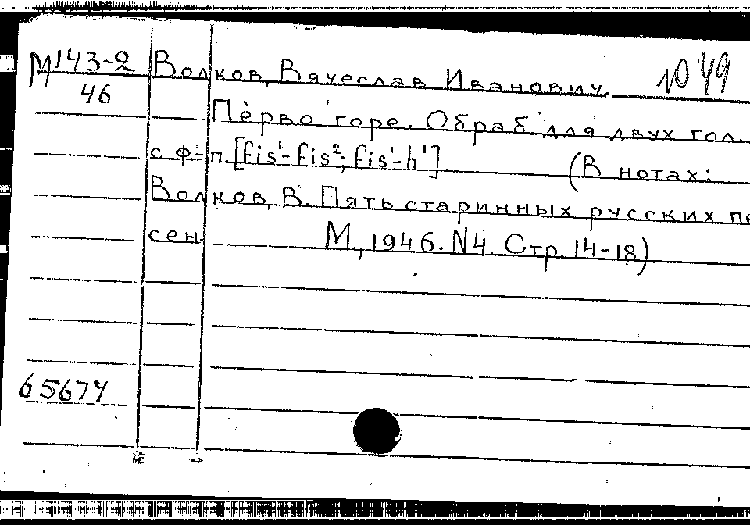 М 143-2 Волков, Вячеслав Иванович. 1049
46
Перво горе. Обраб для двух гол.
с ф-п. [fis¹-fis²; fis¹-h¹] (В нотах:
Волков, В. Пять старинных русских пе
сен М., 1946. N4. Стр. 14-18)
65674